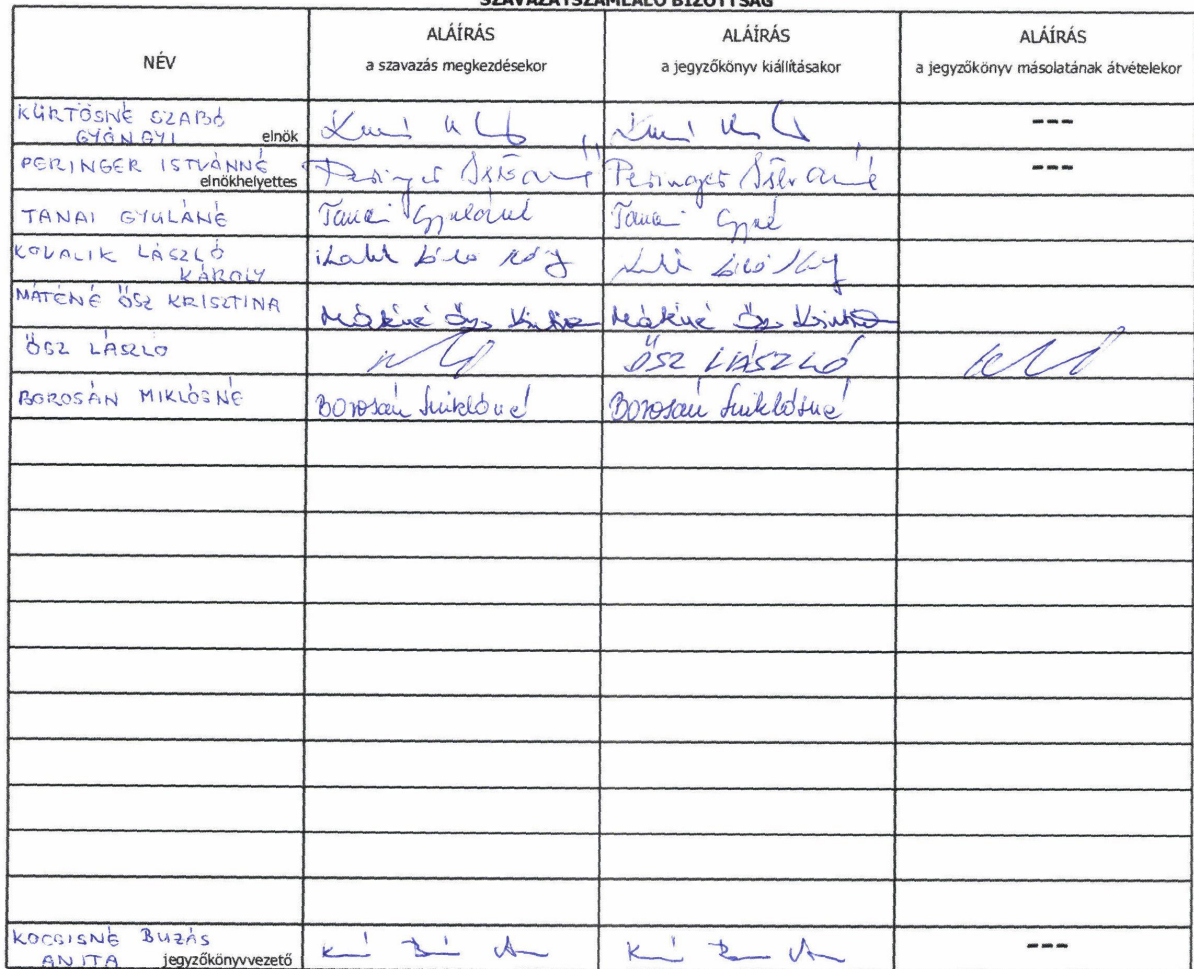 SZAVAZATSZÁMLÁLÓ BIZOTTSÁG
NÉV
ALÁÍRÁS
a szavazás megkezdésekor
ALÁÍRÁS
a jegyzőkönyv kiállításakor
ALÁÍRÁS
a jegyzőkönyv másolatának átvételekor
KÜRTÖSNÉ SZABÓ
GYÖNGYI elnök
---
PERINGER ISTVÁNNÉ
elnökhelyettes
Peringer Istvánné Peringer Istvánné
---
TANAI GYULÁNÉ Tanai Gyuláné Tanai
KOVALIK LÁSZLÓ
KÁROLY
MÁTÉNÉ ŐSZ KRISZTINA
Máténé Ősz Krisztina Máténé Ősz Krisztina
ŐSZ LÁSZLÓ ŐSZ LÁSZLÓ
BOROSÁN MIKLÓSNÉ Borosán Miklósné Borosán Miklósné
KOCSISNÉ BUZÁS
ANITA jegyzőkönyvvezető
---